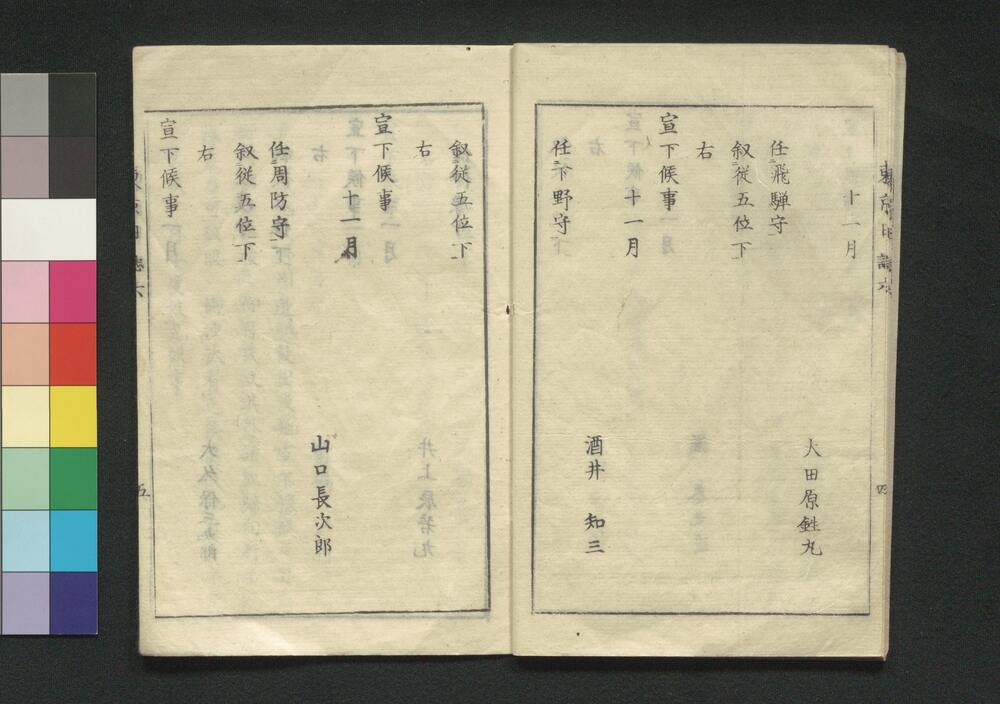 十一月
大田原鉎丸
任飛騨守
叙従五位下
右
宣下候事
十一月
酒井　知三
任下野守
叙従五位下
右
宣下候事
十一月
山口長次郎
任周防守
叙従五位下
右
宣下候事